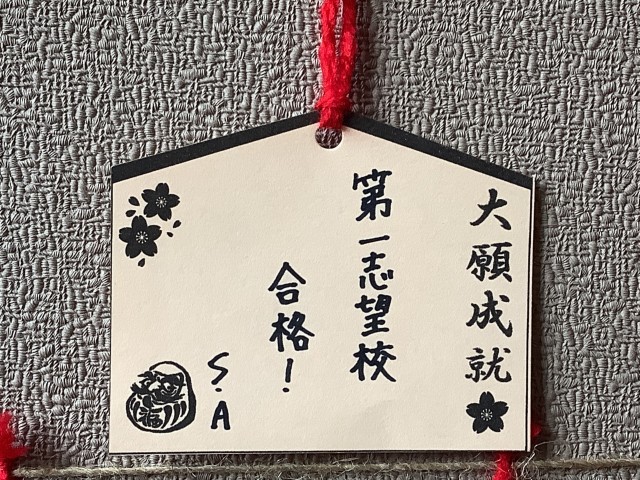 大願成就
第一志望校
合格！
S.A
福